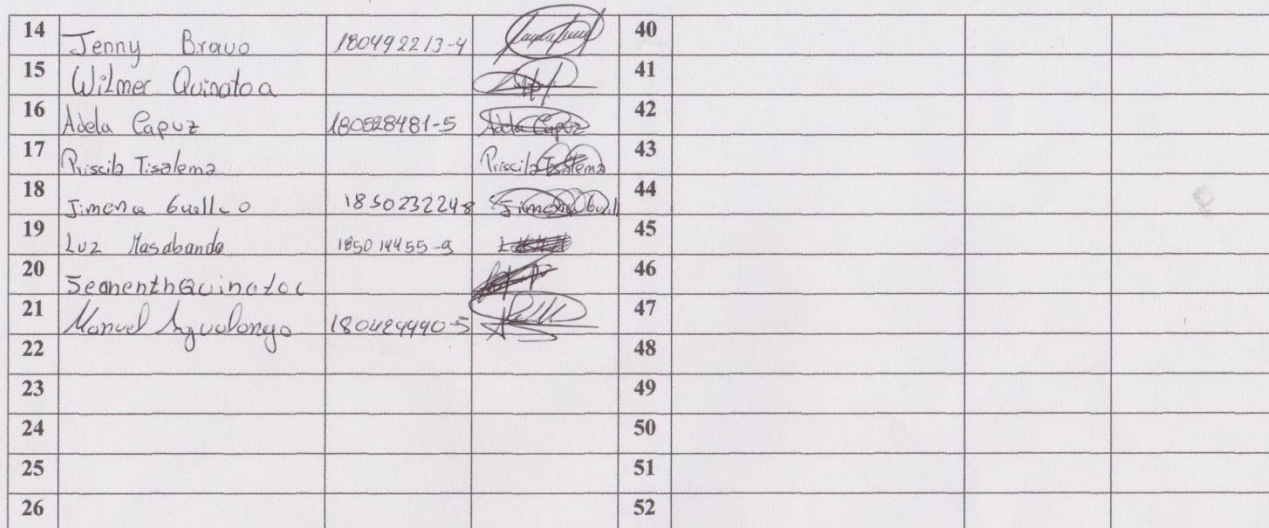 14 Jenny Bravo 180492213-4 40
15 Wilmer Quinatoa 41
16 Adela Capuz 180528481-5 Adela Capuz 42
17 Priscila Tisalema Priscila Tisalema 43
18 Jimena Guallco 1850232248 Jimena 44
19 Luz Masabanda 185014455-9 45
20 46
21 Manuel Agualongo 180429990-5 47
22 48
23 49
24 50
25 51
26 52